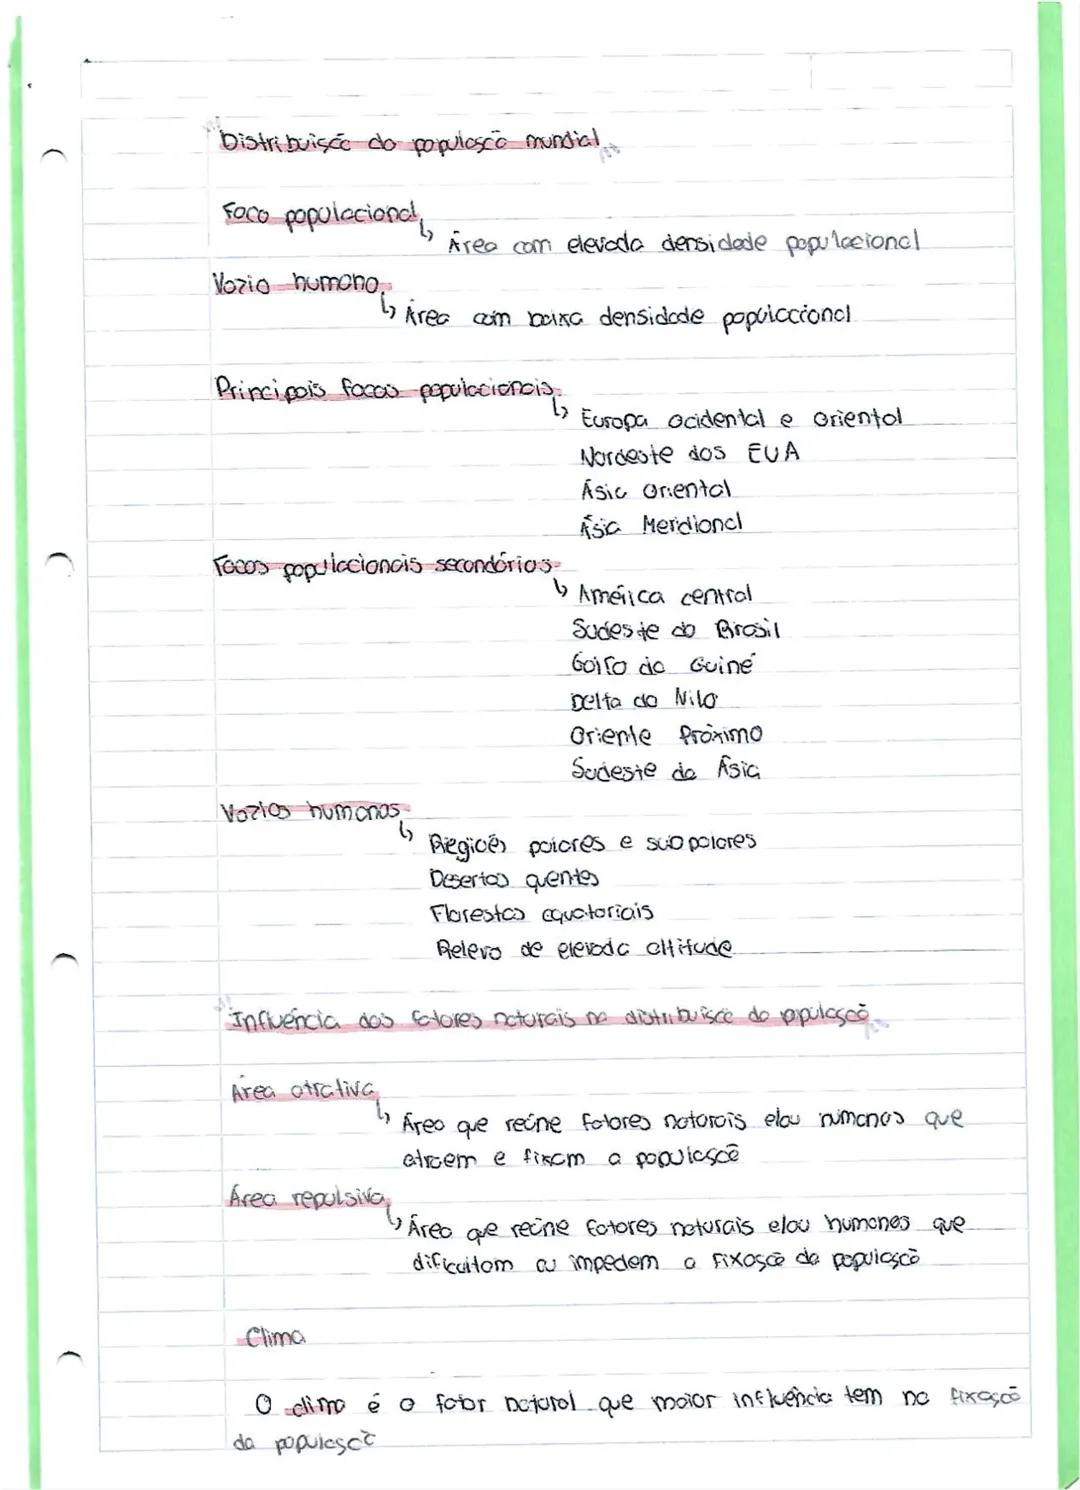 Distribuição da população mundial
Foco populacional
↳ Área com elevada densidade populacional
Vazio humano
↳ Área com baixa densidade populacional
Principais focos populacionais
↳ Europa ocidental e oriental
Nordeste dos EUA
Ásia oriental
Ásia Meridional
Focos populacionais secundários
↳ América central
Sudeste do Brasil
Golfo da Guiné
Delta do Nilo
Oriente Próximo
Sudeste da Ásia
Vazios humanos
↳ Regiões polares e subpolares
Desertos quentes
Florestas equatoriais
Relevo de elevada altitude
Influência dos fatores naturais na distribuição da população
Área atrativa
↳ Área que reúne fatores naturais e/ou humanos que
atraem e fixam a população
Área repulsiva
↳ Área que reúne fatores naturais e/ou humanos que
dificultam ou impedem a fixação da população
Clima
O clima é o fator natural que maior influência tem na fixação
da população